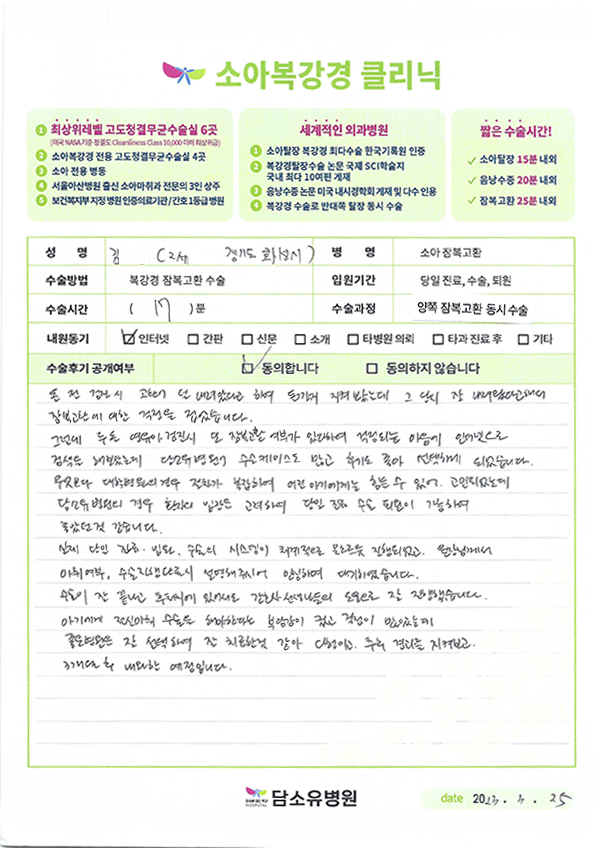 소아복강경 클리닉
1 최상위레벨 고도청결무균수술실 6곳
(미국 NASA기준 청결도 Cleanliness Class 10,000 이하 최상위급)
2 소아복강경 전용 고도청결무균수술실 4곳
3 소아 전용 병동
4 서울아산병원 출신 소아마취과 전문의 3인 상주
5 보건복지부 지정 병원 인증의료기관 / 간호 1등급 병원
세계적인 외과병원
1 소아탈장 복강경 최다수술 한국기록원 인증
2 복강경탈장수술 논문 국제 SCI학술지
국내 최다 10여편 게재
3 음낭수종 논문 미국 내시경학회 게재 및 다수 인용
4 복강경 수술로 반대쪽 탈장 동시 수술
짧은 수술시간!
✓ 소아탈장 15분 내외
✓ 음낭수종 20분 내외
✓ 잠복고환 25분 내외
성 명 김 (2세 경기도 화성시) 병 명 소아 잠복고환
수술방법 복강경 잠복고환 수술 입원기간 당일 진료, 수술, 퇴원
수술시간 ( 17 ) 분 수술과정 양쪽 잠복고환 동시 수술
내원동기 ☑ 인터넷 □ 간판 □ 신문 □ 소개 □ 타병원 의뢰 □ 타과 진료 후 □ 기타
수술후기 공개여부 ☑ 동의합니다 □ 동의하지 않습니다
돌 전 검진시 고환이 덜 내려왔다고 하여 지켜봤는데 그 당시 잘 내려왔다고해서
잠복고환에 대한 걱정을 접었습니다.
그런데 두돌 영유아검진시 또 잠복고환 여부가 있다하여 걱정되는 마음에 인터넷으로
검색을 해보았는데 담소유병원이 수술케이스도 많고 후기도 좋아 선택하게 되었습니다.
무엇보다 대학병원의 경우 절차가 복잡하여 어린 아기에게는 힘들 수 있어 고민되었는데
담소유병원의 경우 환자의 입장을 고려하여 당일 진료 수술 퇴원이 가능하여
좋았던것 같습니다.
실제 당일 진료·입원, 수술의 시스템이 체계적으로 진행되었고, 원장님께서
마취여부, 수술진행 설명해주시어 안심하며 대기하였습니다.
수술이 잘 끝나고 후처치에 있어서도 간호사선생님들의 도움으로 잘 진행했습니다.
아기에게 전신마취 수술을 해야한다는 부담감이 컸고 걱정이 많았는데
병원을 잘 선택하여 잘 치료한것 같아 다행이고, 추후 경과를 지켜보고
3개월 후 내원할 예정입니다.
담소유병원
DAMSOYU HOSPITAL
date 2023. 3. 25